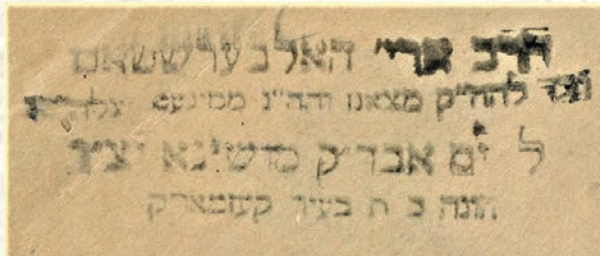 הרב ארי' האלבערשטאם
נכד להה"ק מצאנז והה"ג מסיגעט זצלה"ה
ל ים אבד"ק מושינא יצ"ו
חונה כ ת בעיר קעזמארק